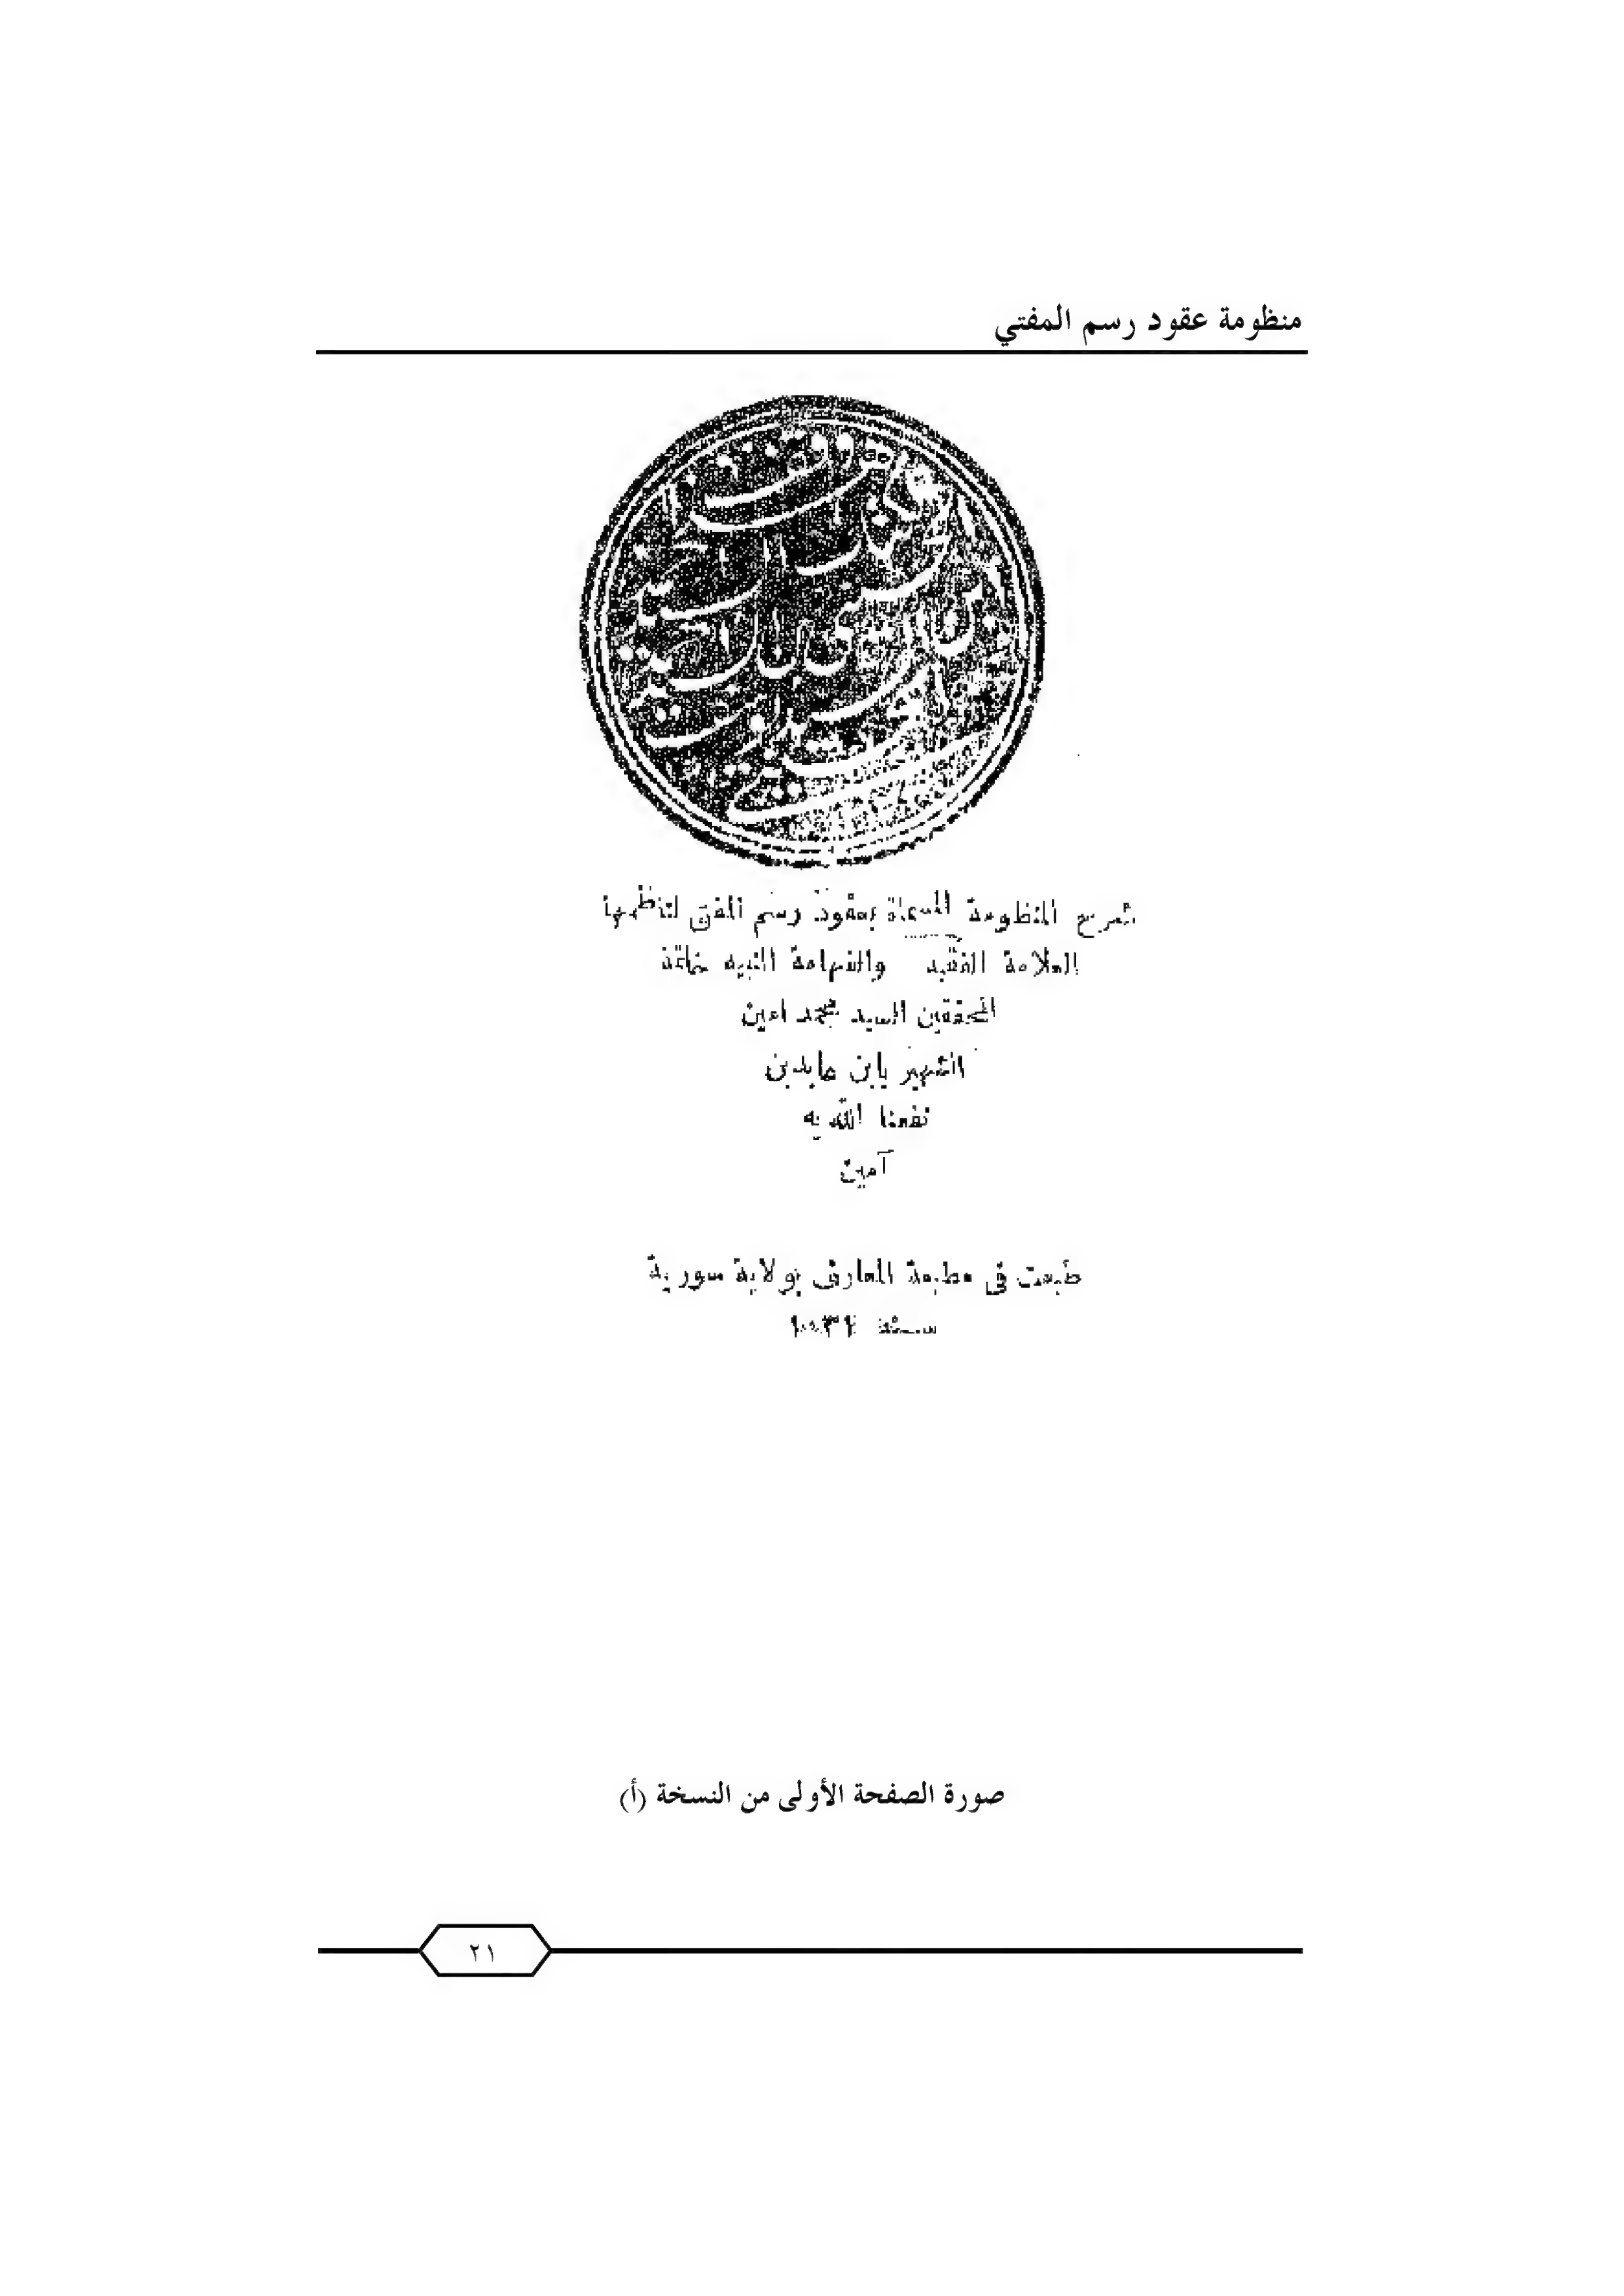 منظومة عقود رسم المفتي
شرح المنظومة المسماة بعقود رسم المفتى لناظمها
العلامة الفقيه والفهامة النبيه خاتمة
المحققين السيد محمد امين
الشهير بابن عابدين
نفعنا الله به
آمين
طبعت فى مطبعة المعارف بولاية سورية
سنة
صورة الصفحة الأولى من النسخة (أ)
٢١